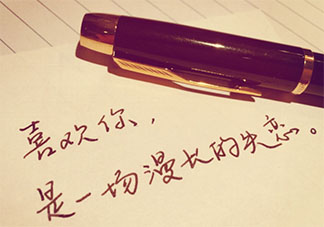 喜欢你，
是一场漫长的失恋。